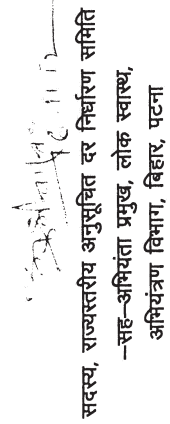 सदस्य, राज्यस्तरीय अनुसूचित दर निर्धारण समिति
–सह–अभियंता प्रमुख, लोक स्वास्थ्य,
अभियंत्रण विभाग, बिहार, पटना